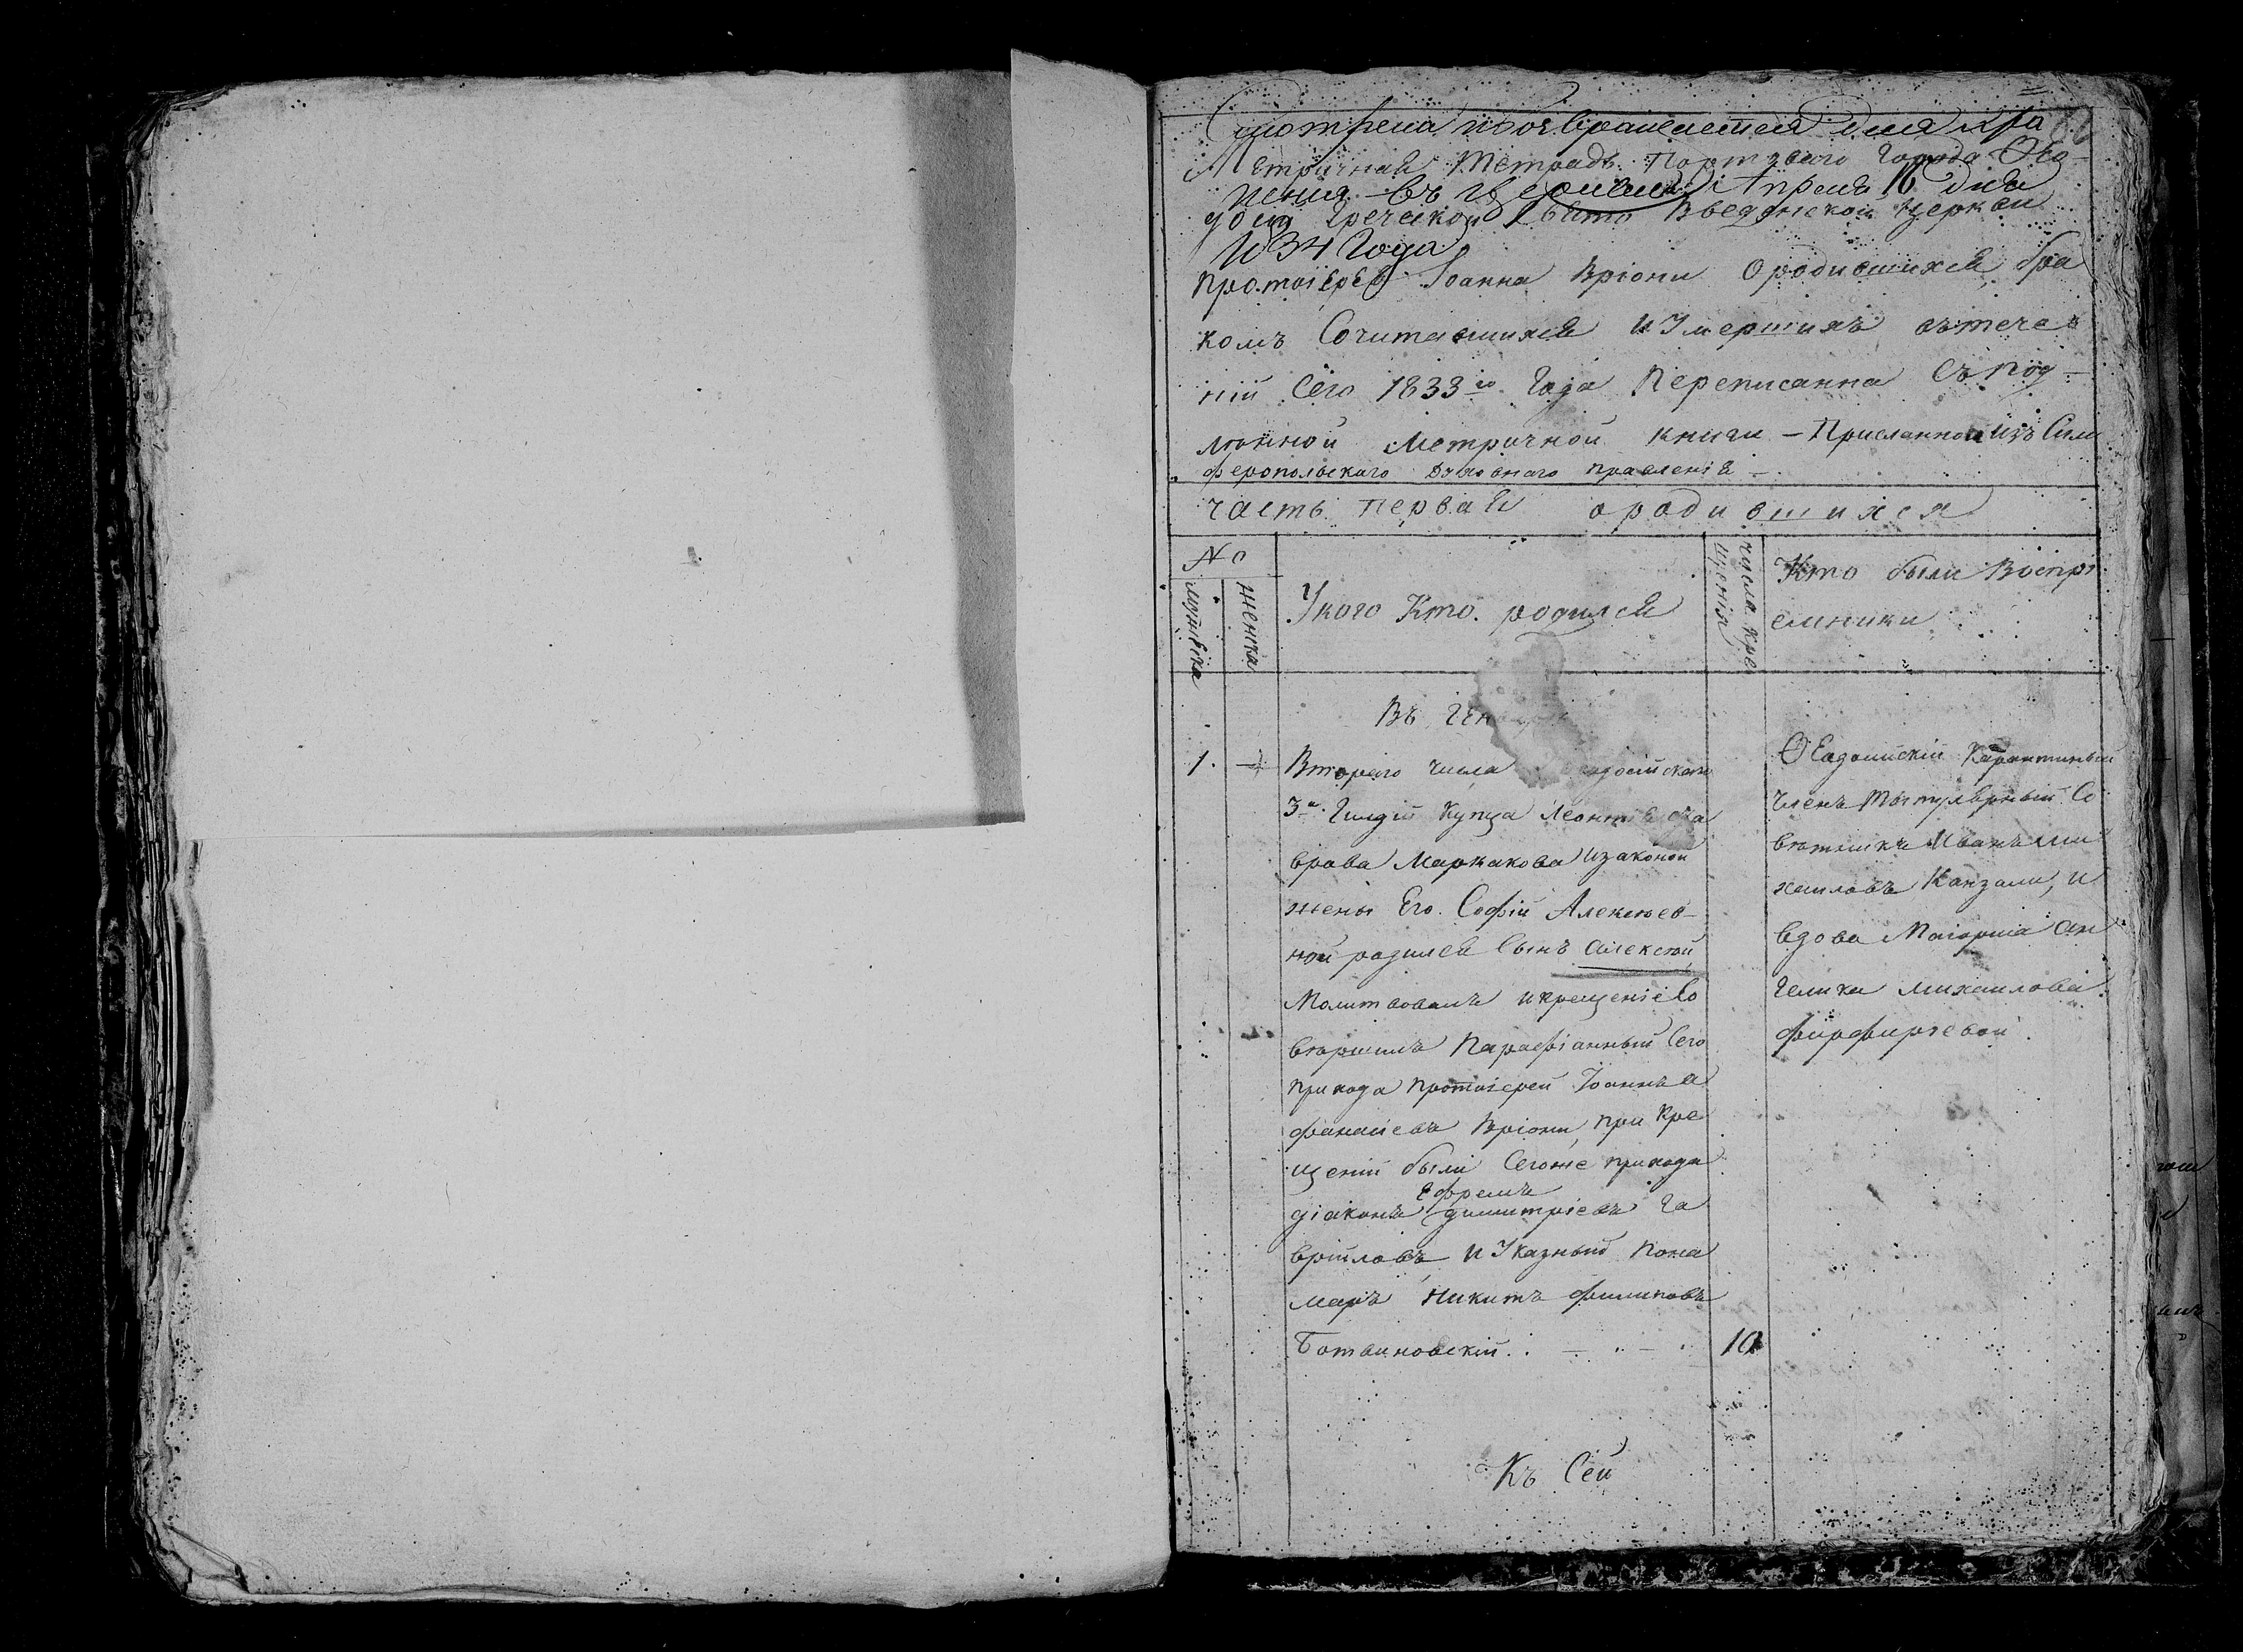 Смотрена и возвращается для хра
Метричная Тетрадь Портоваго Города Ѳео-
нения въ церкви Апреля 16 дня
досіи Греческой Свято Введенской церкви
1834 Года
Протоіерея Іоанна Вріони О родившихся, бра
комъ Сочитавшихся и Умершихъ въ тече
ніи Сего 1833го Года Переписанна Съ под-
лѣнной Метричной книги - Присланной изъ Сим
феропольскаго Духовнаго правленія -
часть первая о родившихся
№
мужеска
женска
У кого Кто родился
числа кре
щенія
Кто были Воспрі
емники
Въ Ген
1. Втораго числа Ѳеодосійскаго
3й Гилдіи Купца Леонтія Ста
врова Маркакова и законой
жены Его Софіи Алексѣев-
ной родился Сынъ Алексѣй
Молитвовалъ и крещеніе Со
вѣршилъ Парафіанный Сего
прихода протоіерей Іоаннъ А
фанасіевъ Вріони, при Кре
щеніи были Сегоже прихода
Ефремъ
діаконъ димитріевъ Га
вріиловъ и Указный Пона
маръ Никитъ филиповъ
Ботвиновскій. 10
Ѳеодосійскій Карантиный
членъ Титулярный Со
вѣтникъ Иванъ Ми
хаиловъ Канзали, и
вдова Маіорша Ан
гелика Михаилова
фирфиріевой
Къ Сей